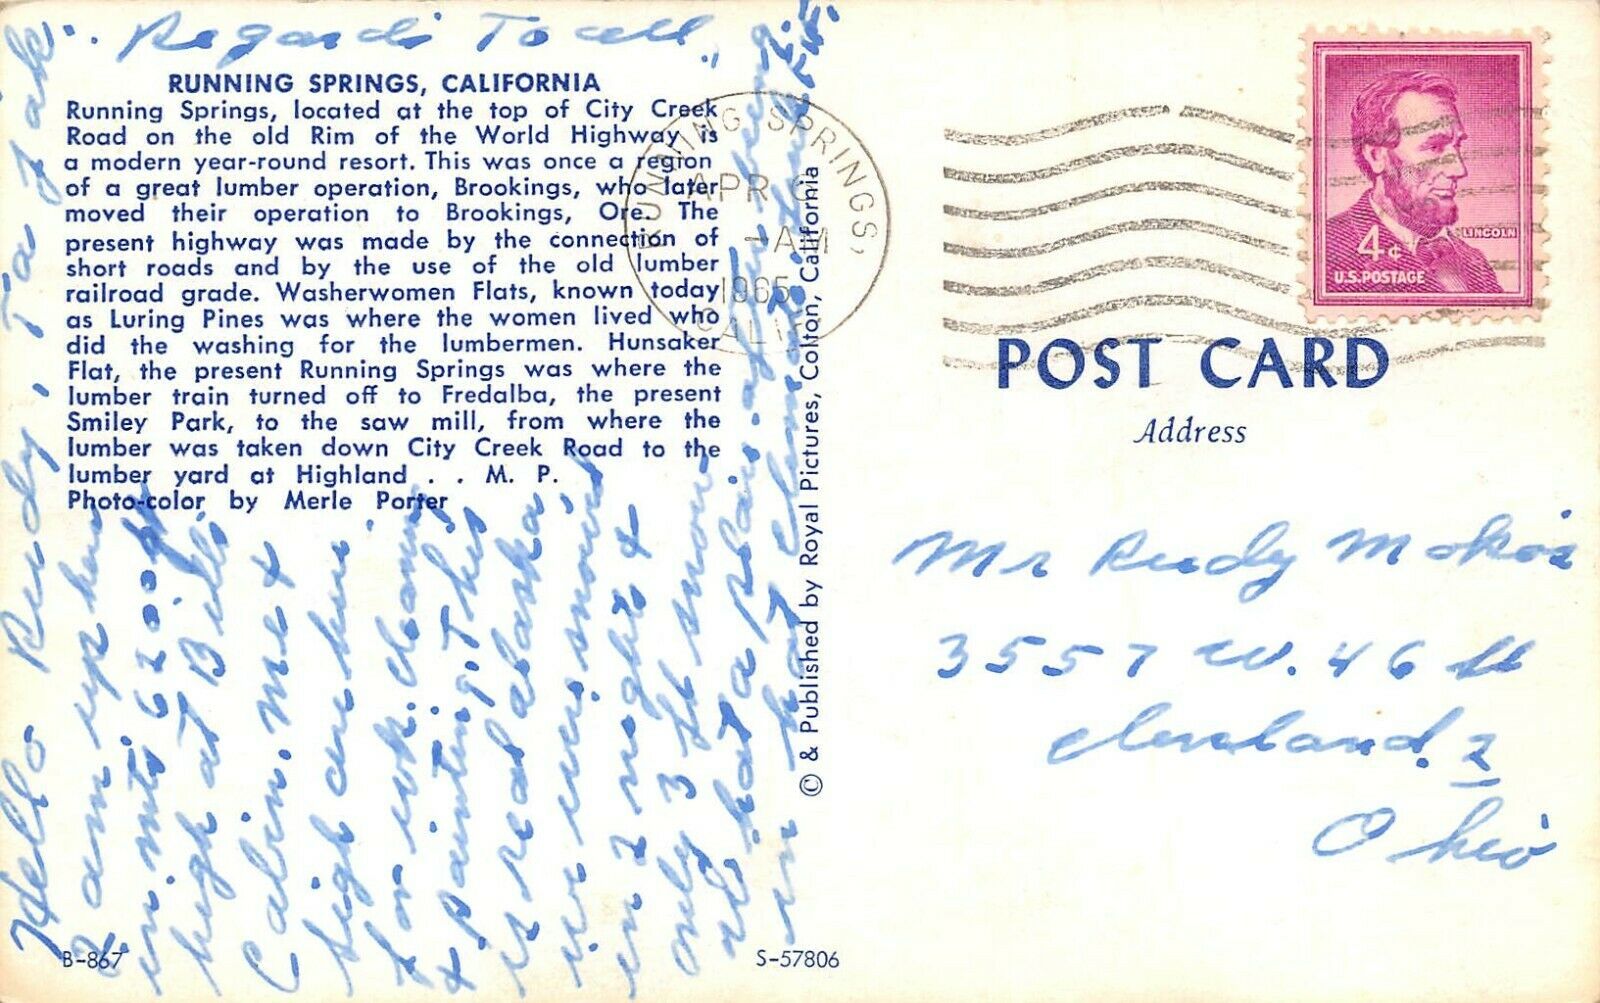 Regards To all
RUNNING SPRINGS, CALIFORNIA
Running Springs, located at the top of City Creek
Road on the old Rim of the World Highway is
a modern year-round resort. This was once a region
of a great lumber operation, Brookings, who later
moved their operation to Brookings, Ore. The
present highway was made by the connection of
short roads and by the use of the old lumber
railroad grade. Washerwomen Flats, known today
as Luring Pines was where the women lived who
did the washing for the lumbermen. Hunsaker
Flat, the present Running Springs was where the
lumber train turned off to Fredalba, the present
Smiley Park, to the saw mill, from where the
lumber was taken down City Creek Road to the
lumber yard at Highland . . M. P.
Photo-color by Merle Porter
Hello Rudy,
I am up here
in mts 6200 ft
high at Bills
Cabin. Me &
are here
for wk. cleaning
& painting. This
is real alaska
we were snowed
in 2 nights &
only 3 ft snow
B-867
S-57806
© & Published by Royal Pictures, Colton, California
RUNNING SPRINGS,
APR
AM
1965
CALIF.
LINCOLN
4¢
U.S. POSTAGE
POST CARD
Address
Mr Rudy
3557 W. 46 St
Cleveland. 2
Ohio